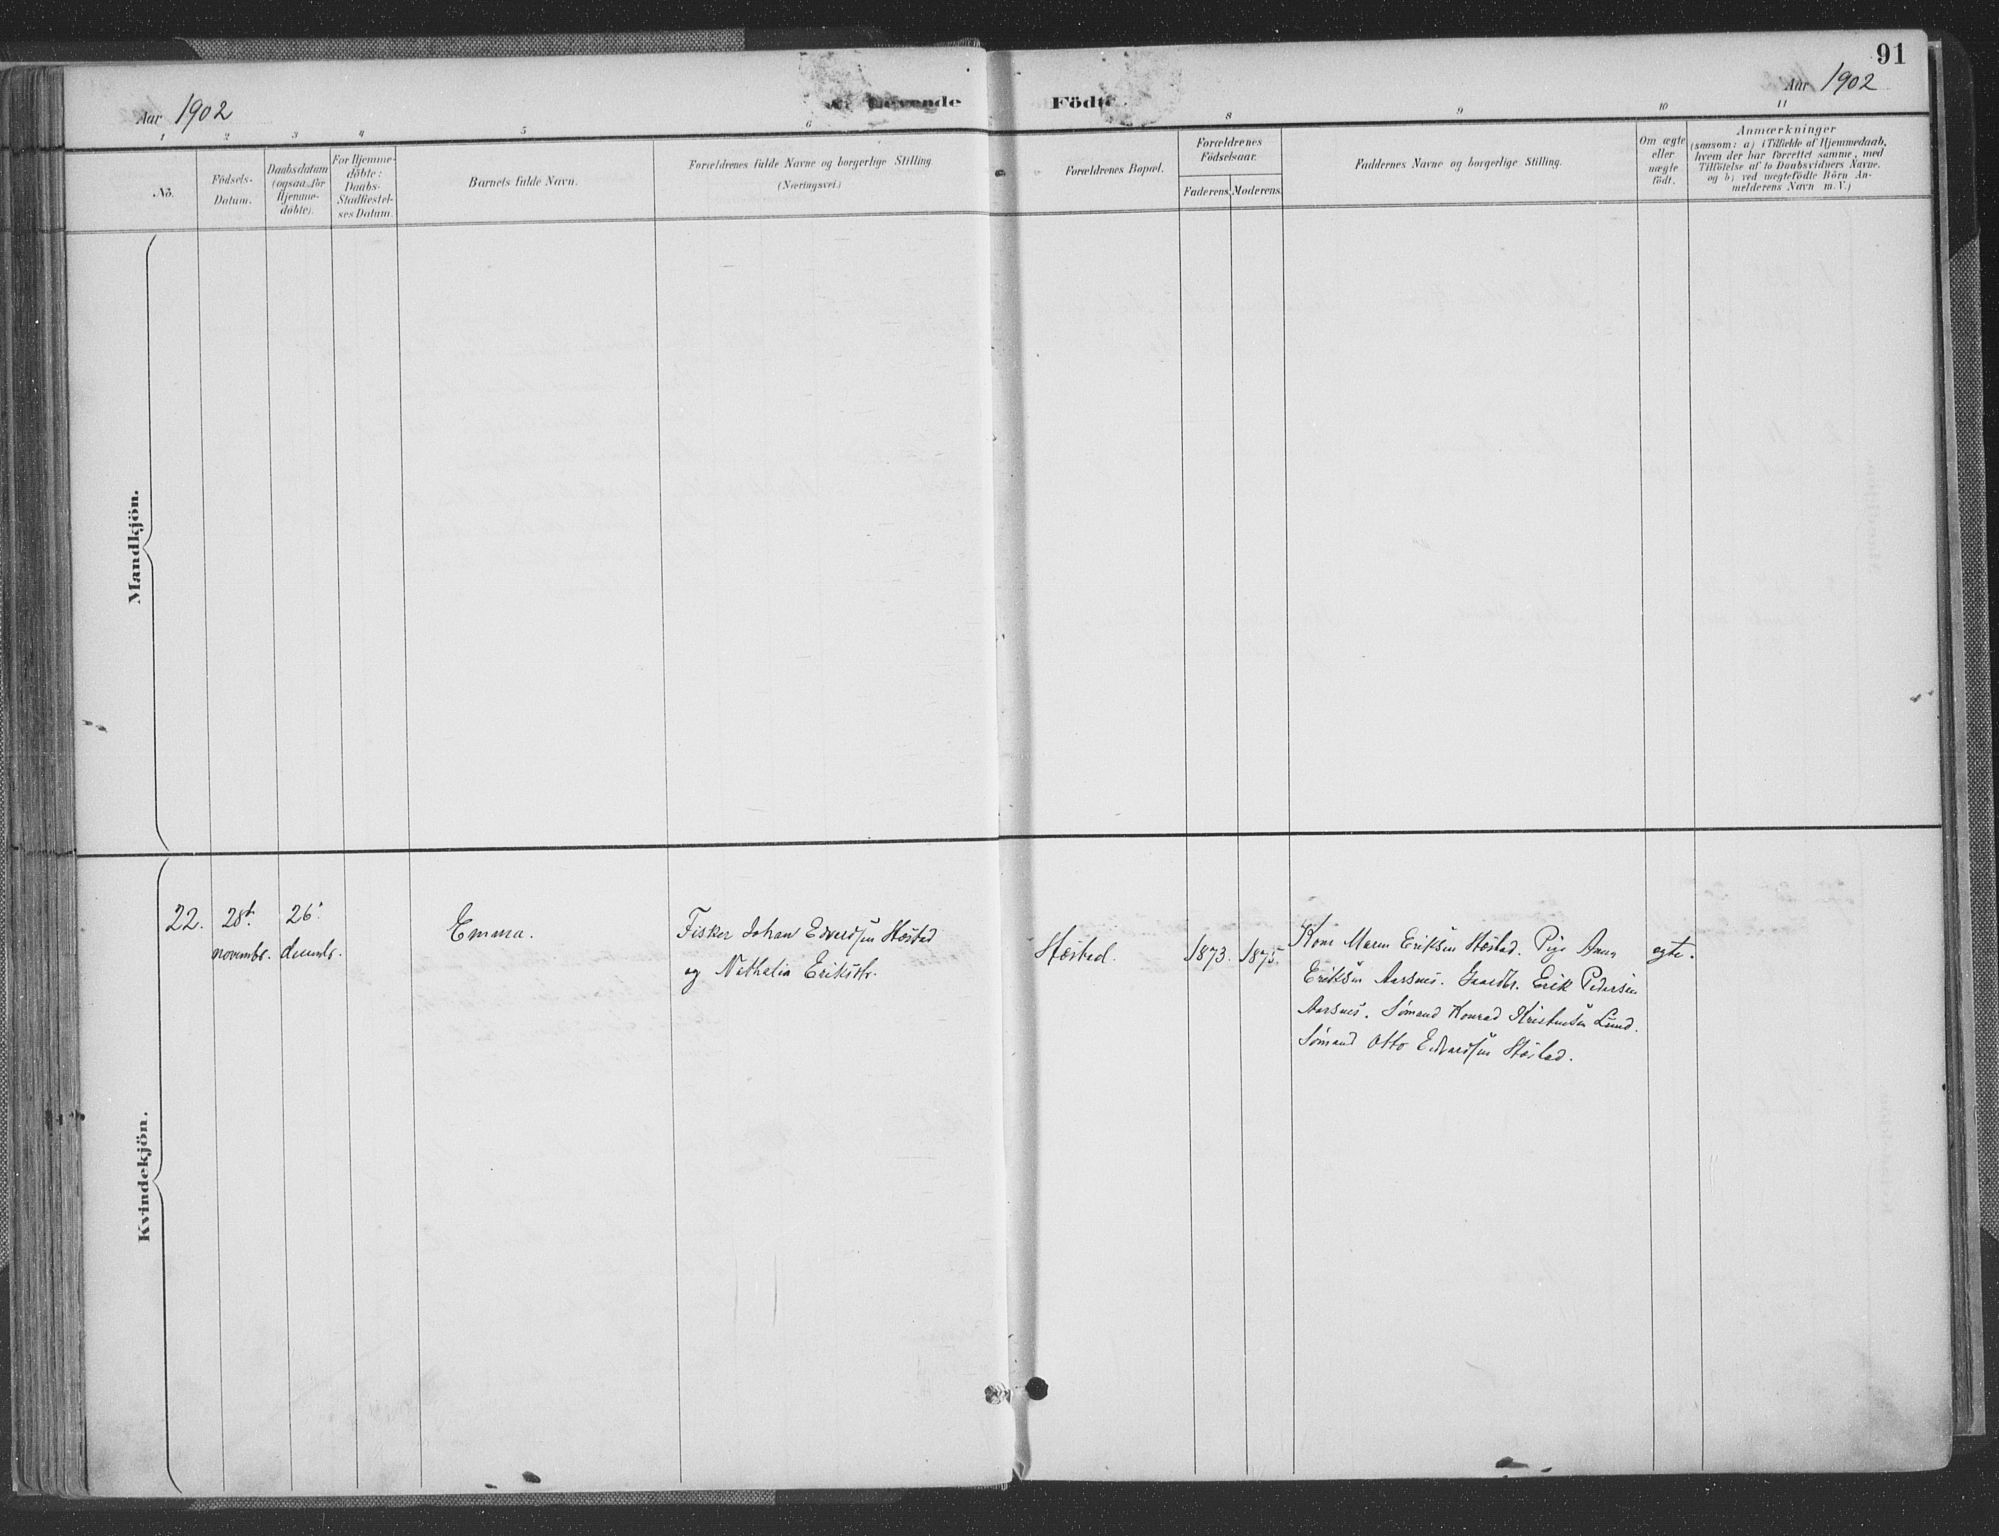 91
Aar 1902
Levende Födte
Aar 1902
1 2 3 4 5 6 8 9 10 11
No.
Födsels-
Datum.
Daabsdatum
(ogsaa for
Hjemme-
döbte).
For Hjemme-
döbte:
Daabs-
Stadfæstel-
ses Datum.
Barnets fulde Navn.
Forældrenes fulde Navne og borgerlige Stilling
(Næringsvei.)
Forældrenes Bopæl.
Forældrenes
Födselsaar.
Faderens. Moderens.
Faddernes Navne og borgerlige Stilling.
Om ægte
eller
uægte
födt.
Anmærkninger
(saasom: a) i Tilfælde af Hjemmedaab,
hvem der har forrettet samme, med
Tilföielse af to Daabsvidners Navne.
og b) ved uægtefödte Börn An-
melderens Navn m. V.)
Mandkjön.
Kvindekjön.
22.
28de
novembr.
26.
decembr.
Emma.
Fisker Johan Edvardsen Hæstad
og Nathalia Eriksdtr.
Hæstad.
1873.
1875.
Kone Maren Eriksen Hæstad. Pige Anna
Eriksen Aarsnes. Gaardbr. Erik Pedersen
Aarsnes. Sømand Konrad Kristensen Lund.
Sømand Otto Edvardsen Hæstad.
egte.